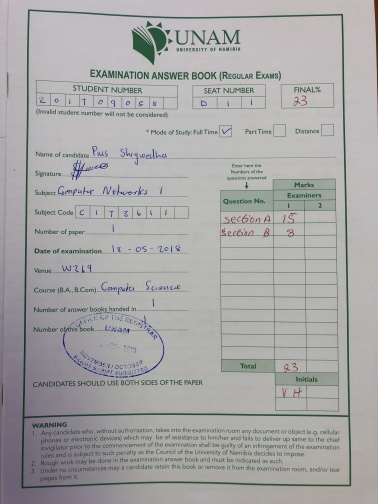 UNAM
UNIVERSITY OF NAMIBIA
EXAMINATION ANSWER BOOK (REGULAR EXAMS)
STUDENT NUMBER SEAT NUMBER FINAL%
D 1 1 23
(Invalid student number will not be considered)
* Mode of Study: Full Time ✓ Part Time Distance
Name of candidate
Enter here the Numbers of the questions answered
Signature
Subject Computer Networks 1
Marks
Question No. Examiners
1 2
Subject Code
Section A 15
Number of paper 1
Section B 8
Date of examination 18-05-2018
Venue W219
Course (B.A., B.Com) Computer Science
Number of answer books handed in 1
Number of this book 1
OFFICE OF THE REGISTRAR
UNAM
Total 23
CANDIDATES SHOULD USE BOTH SIDES OF THE PAPER
Initials
V H
WARNING
1. Any candidate who, without authorisation, takes into the examination room any document or object (e.g. cellular
phones or electronic devices) which may be of assistance to him/her and fails to deliver up same to the chief
invigilator prior to the commencement of the examination shall be guilty of an infringement of the examination
rules and is subject to such penalty as the Council of the University of Namibia decides to impose.
2. Rough work may be done in the examination answer book and must be indicated as such.
3. Under no circumstances may a candidate retain this book or remove it from the examination room, and/or tear
pages from it.